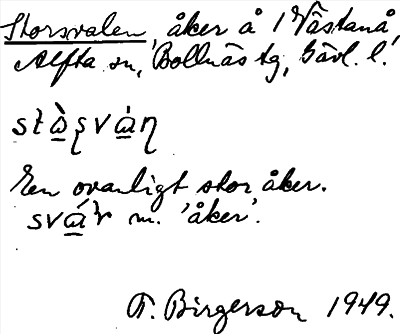 Storsvalen, åker å 1 Västanå,
Alfta sn, Bollnäs tg, Gävl. l.
En ovanligt stor åker.
m. 'åker'.
F. Birgerson 1949.